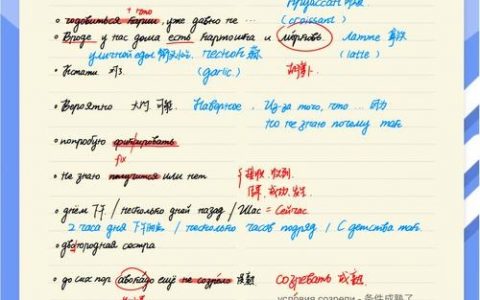 + что круассан
годобиться корни, уже давно не ... (croissant)
Вроде у нас дома есть картошка и морковь. Латте 拿铁
уличной еды чеснок 蒜 (latte)
Кстати 对了 (garlic) 胡萝卜
Вероятно 大概 可能 Наверное, Из-за того, что ...
но не знаю почему так.
попробую фиксировать
fix
не знаю получится или нет 接收、收到
成功、发生
днём 下午 / несколько дней назад / Щас = Сейчас
2 часа дня 下午两点 / несколько часов подряд / С детства так.
двоюродная сестра
до сих пор авокадо ещё не созрело 成熟 созревать 成熟
условия созрели - 条件成熟了